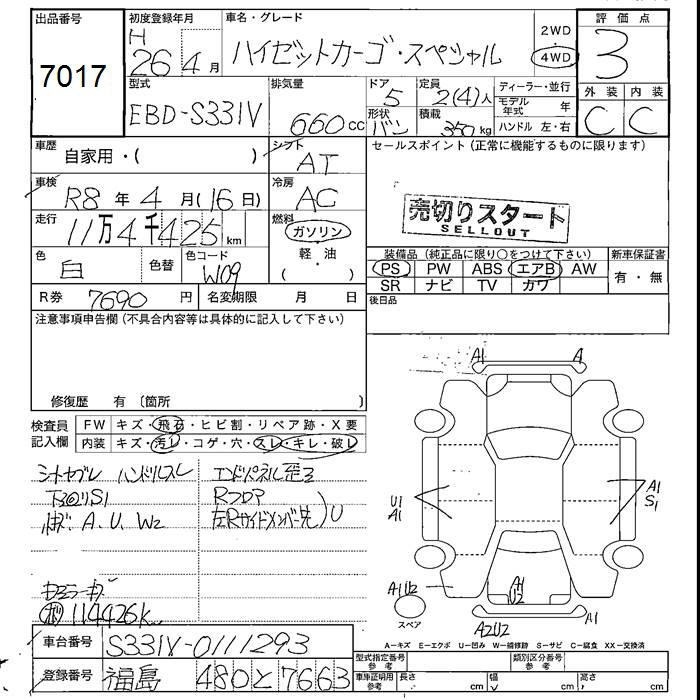 出品番号 7017
初度登録年月 H 26 4月
車名・グレード ハイゼットカーゴ・スペシャル
2WD
4WD
評価点 3
外装 内装
C C
型式 EBD-S331V
排気量 660cc
ドア 5
形状 バン
定員 2(4)人
積載 350kg
ディーラー・並行
モデル年式 年
ハンドル 左・右
車歴 自家用・( )
シフト AT
車検 R8年4月(16日)
冷房 AC
走行 11万4千425km
燃料 ガソリン
軽・油
( )
色 白
色替
色コード W09
R券 7690円
名変期限 月 日
セールスポイント (正常に機能するものに限ります)
売切りスタート
SELLOUT
装備品 (純正品に限り○をつけて下さい)
PS PW ABS エアB AW
SR ナビ TV カワ
新車保証書
有・無
後日品
注意事項申告欄 (不具合内容等は具体的に記入して下さい)
修復歴 有 (箇所 )
検査員記入欄
FW キズ・飛石・ヒビ割・リペア跡・X要
内装 キズ・汚レ・コゲ・穴・スレ・キレ・破レ
シートヤブレ ハンドルスレ
下回りS1
A.U.W2
114426k
エンドパネル歪ミ
Rフロア
左Rサイドメンバー先)U
A1 A
U1
A1
A1
S1
A1
U2
A1U2
スペア
A2U2
A1
A-キズ E-エクボ U-凹み W-補修跡 S-サビ C-腐食 XX-交換済
車台番号 S331V-0111293
登録番号 福島 480 と 7663
型式指定番号 参考
類別区分番号 参考
車庫証明用 参考
長さ cm
幅 cm
高さ cm